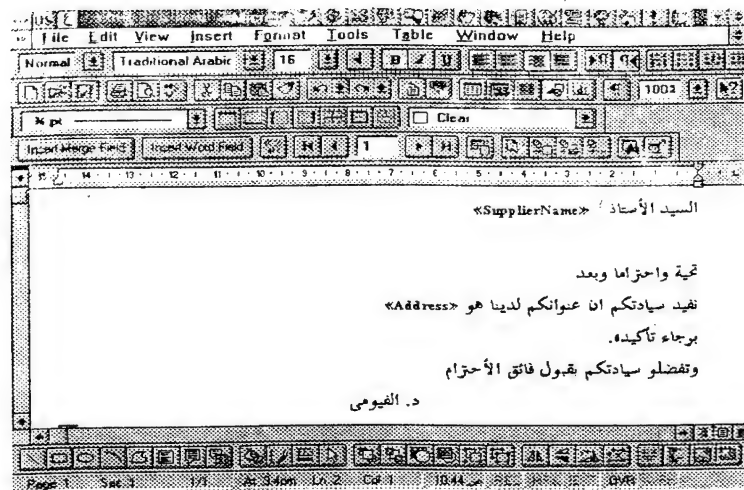 File Edit View Insert Format Tools Table Window Help
Normal Traditional Arabic 16 B I U
100%
¾ pt Clear
Insert Merge Field Insert Word Field 1
15 14 13 12 11 10 9 8 7 6 5 4 3 2 1
السيد الأستاذ / «SupplierName»
تحية واحتراما وبعد
نفيد سيادتكم ان عنوانكم لدينا هو «Address»
برجاء تأكيده.
وتفضلو سيادتكم بقبول فائق الأحترام
د. الفيومى
Page 1 Sec 1 1/1 At 3.4cm Ln 2 Col 1 10:44 OVR